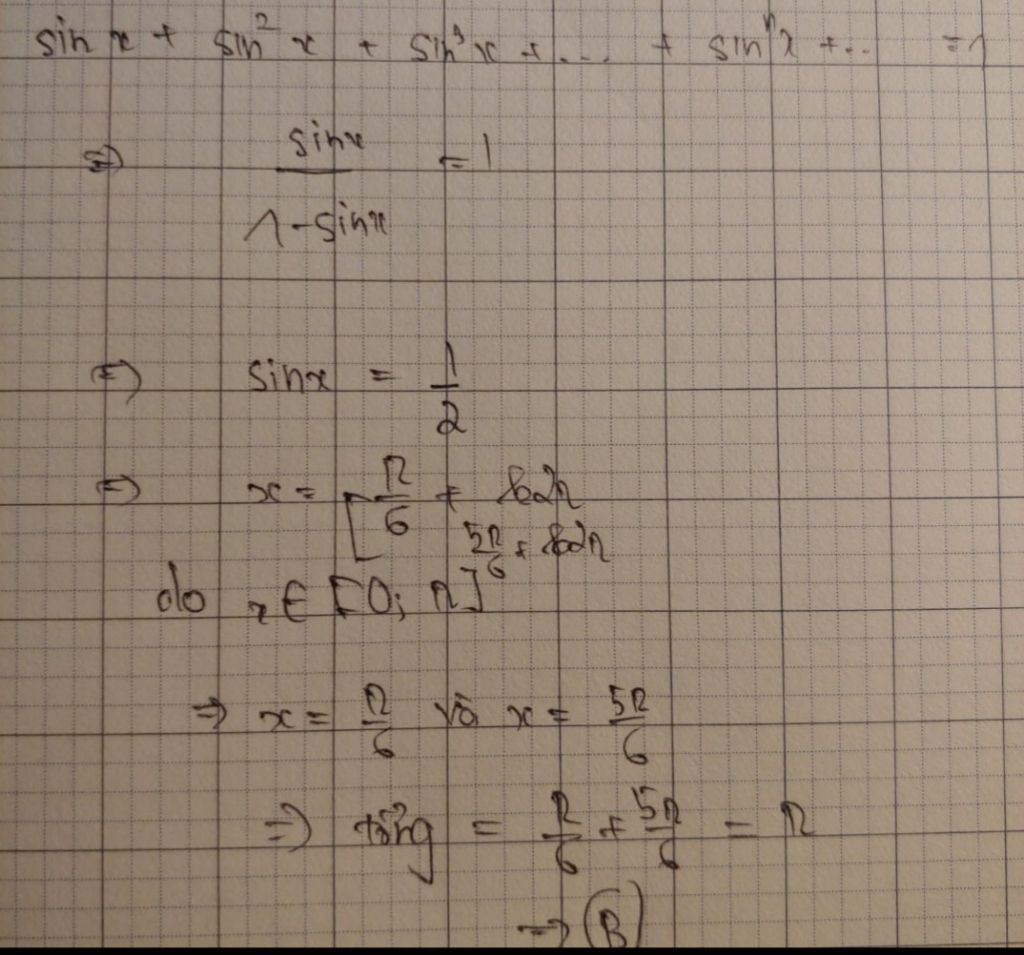 sin x + sin² x + sin³ x + ... + sinⁿ x + ... = 1
⇔ sinx / 1 - sinx = 1
⇔ sinx = 1/2
⇔ x = [ π/6 + k2π
5π/6 + k2π
do x ∈ [0; π]
⇒ x = π/6 và x = 5π/6
⇒ tổng = π/6 + 5π/6 = π
→ B